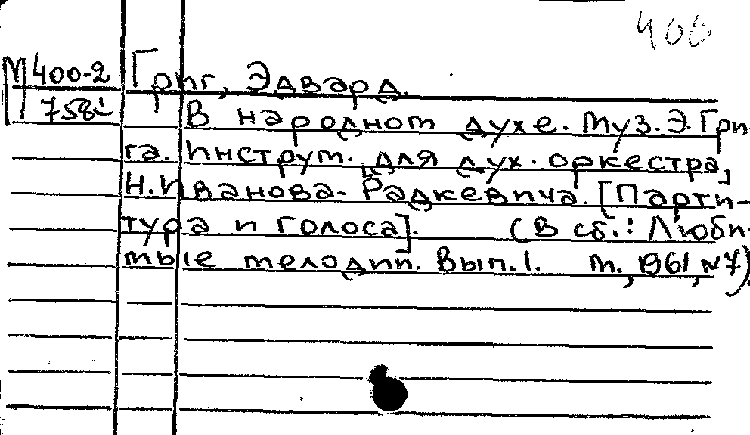 400
М400-2 Григ, Эдвард.
758 В народном духе. Муз. Э. Гри-
га. Инструм. для дух. оркестра,
Н. Иванова-Радкевича. [Парти-
тура и голоса]. (В сб.: Люби-
мые мелодии. Вып. 1. М., 1961, №7)